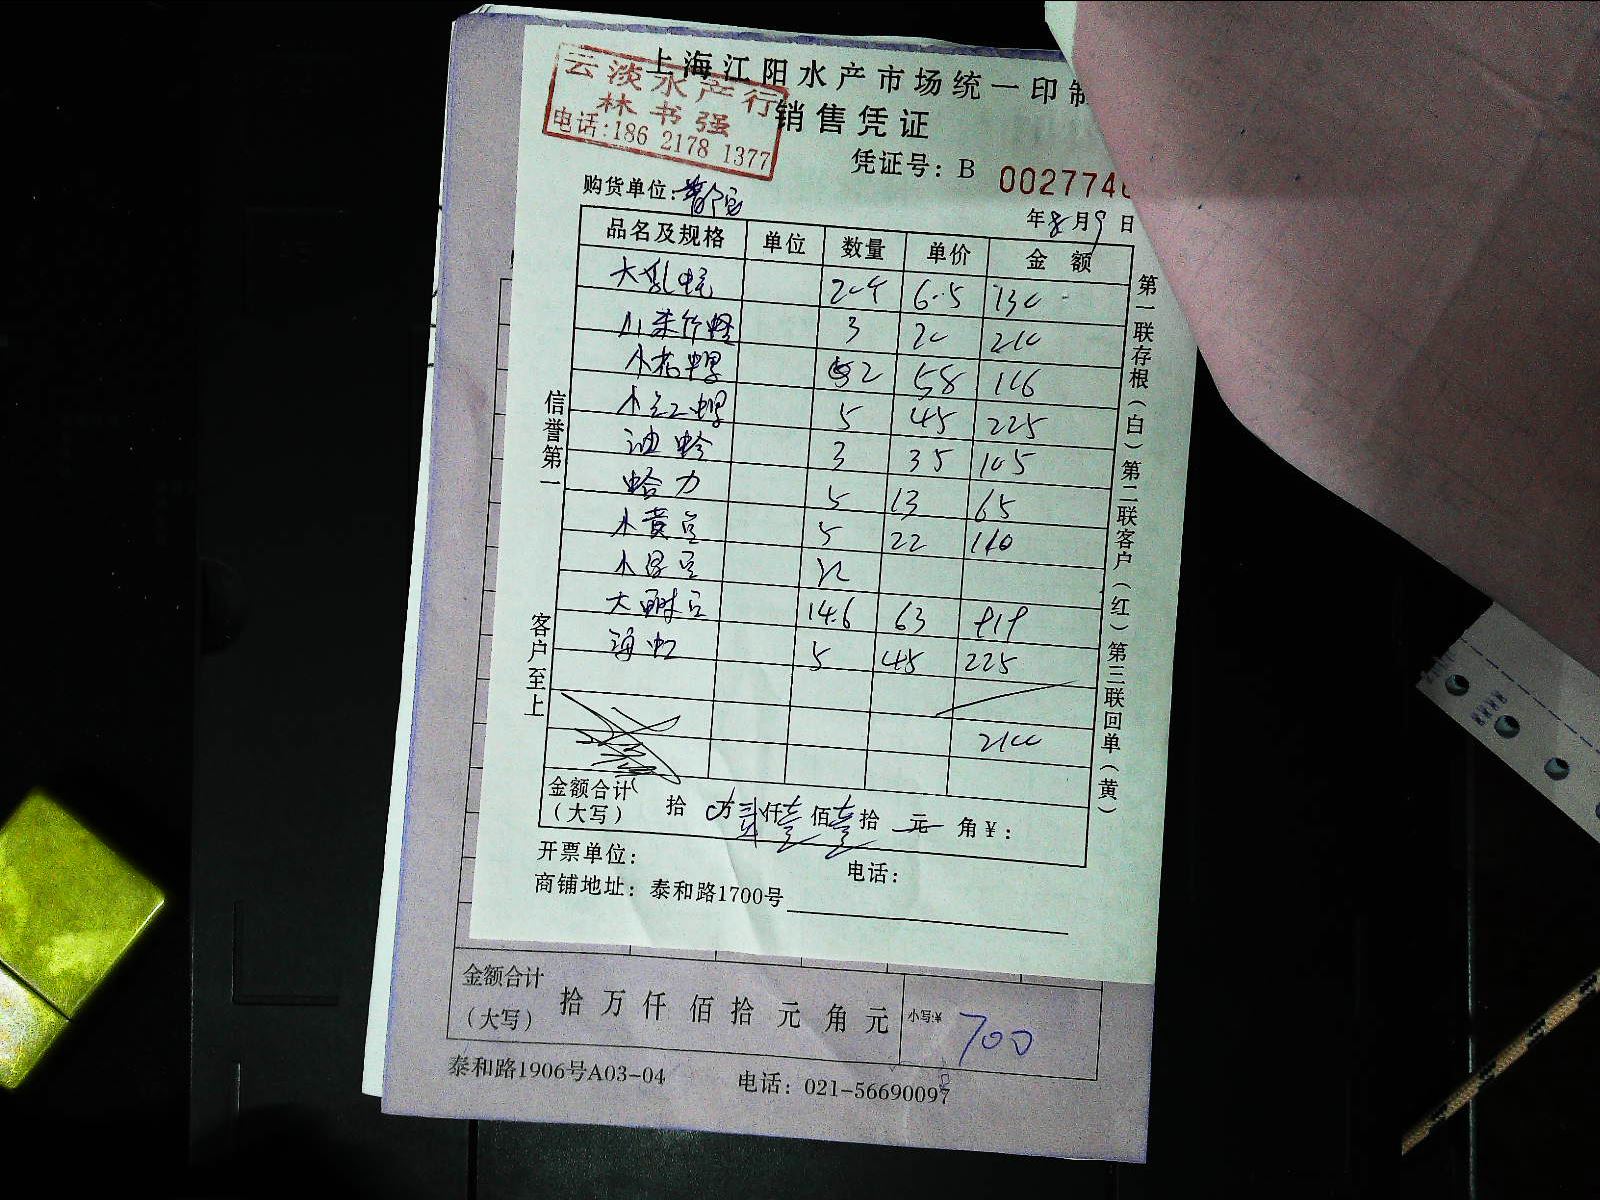 上海江阳水产市场统一印制
云淡水产行
林书强
电话:186 2178 1377
销售凭证
凭证号: B 0027746
购货单位:
年8月9日
品名及规格 单位 数量 单价 金额
大 6.5
3 210
小 2 58 116
小红 5 45 225
油蛤 3 35 105
蛤力 5 13 65
小黄豆 5 22 110
小 豆
大 豆 14.6 63 919
海虹 5 45 225
2100
金额合计(大写) 拾 万贰仟壹佰壹拾 元 角¥:
开票单位: 电话:
商铺地址: 泰和路1700号
信誉第一
客户至上
第一联存根(白)第二联客户(红)第三联回单(黄)
金额合计(大写) 拾万仟佰拾元角元 小写:¥ 700
泰和路1906号A03-04 电话: 021-56690097